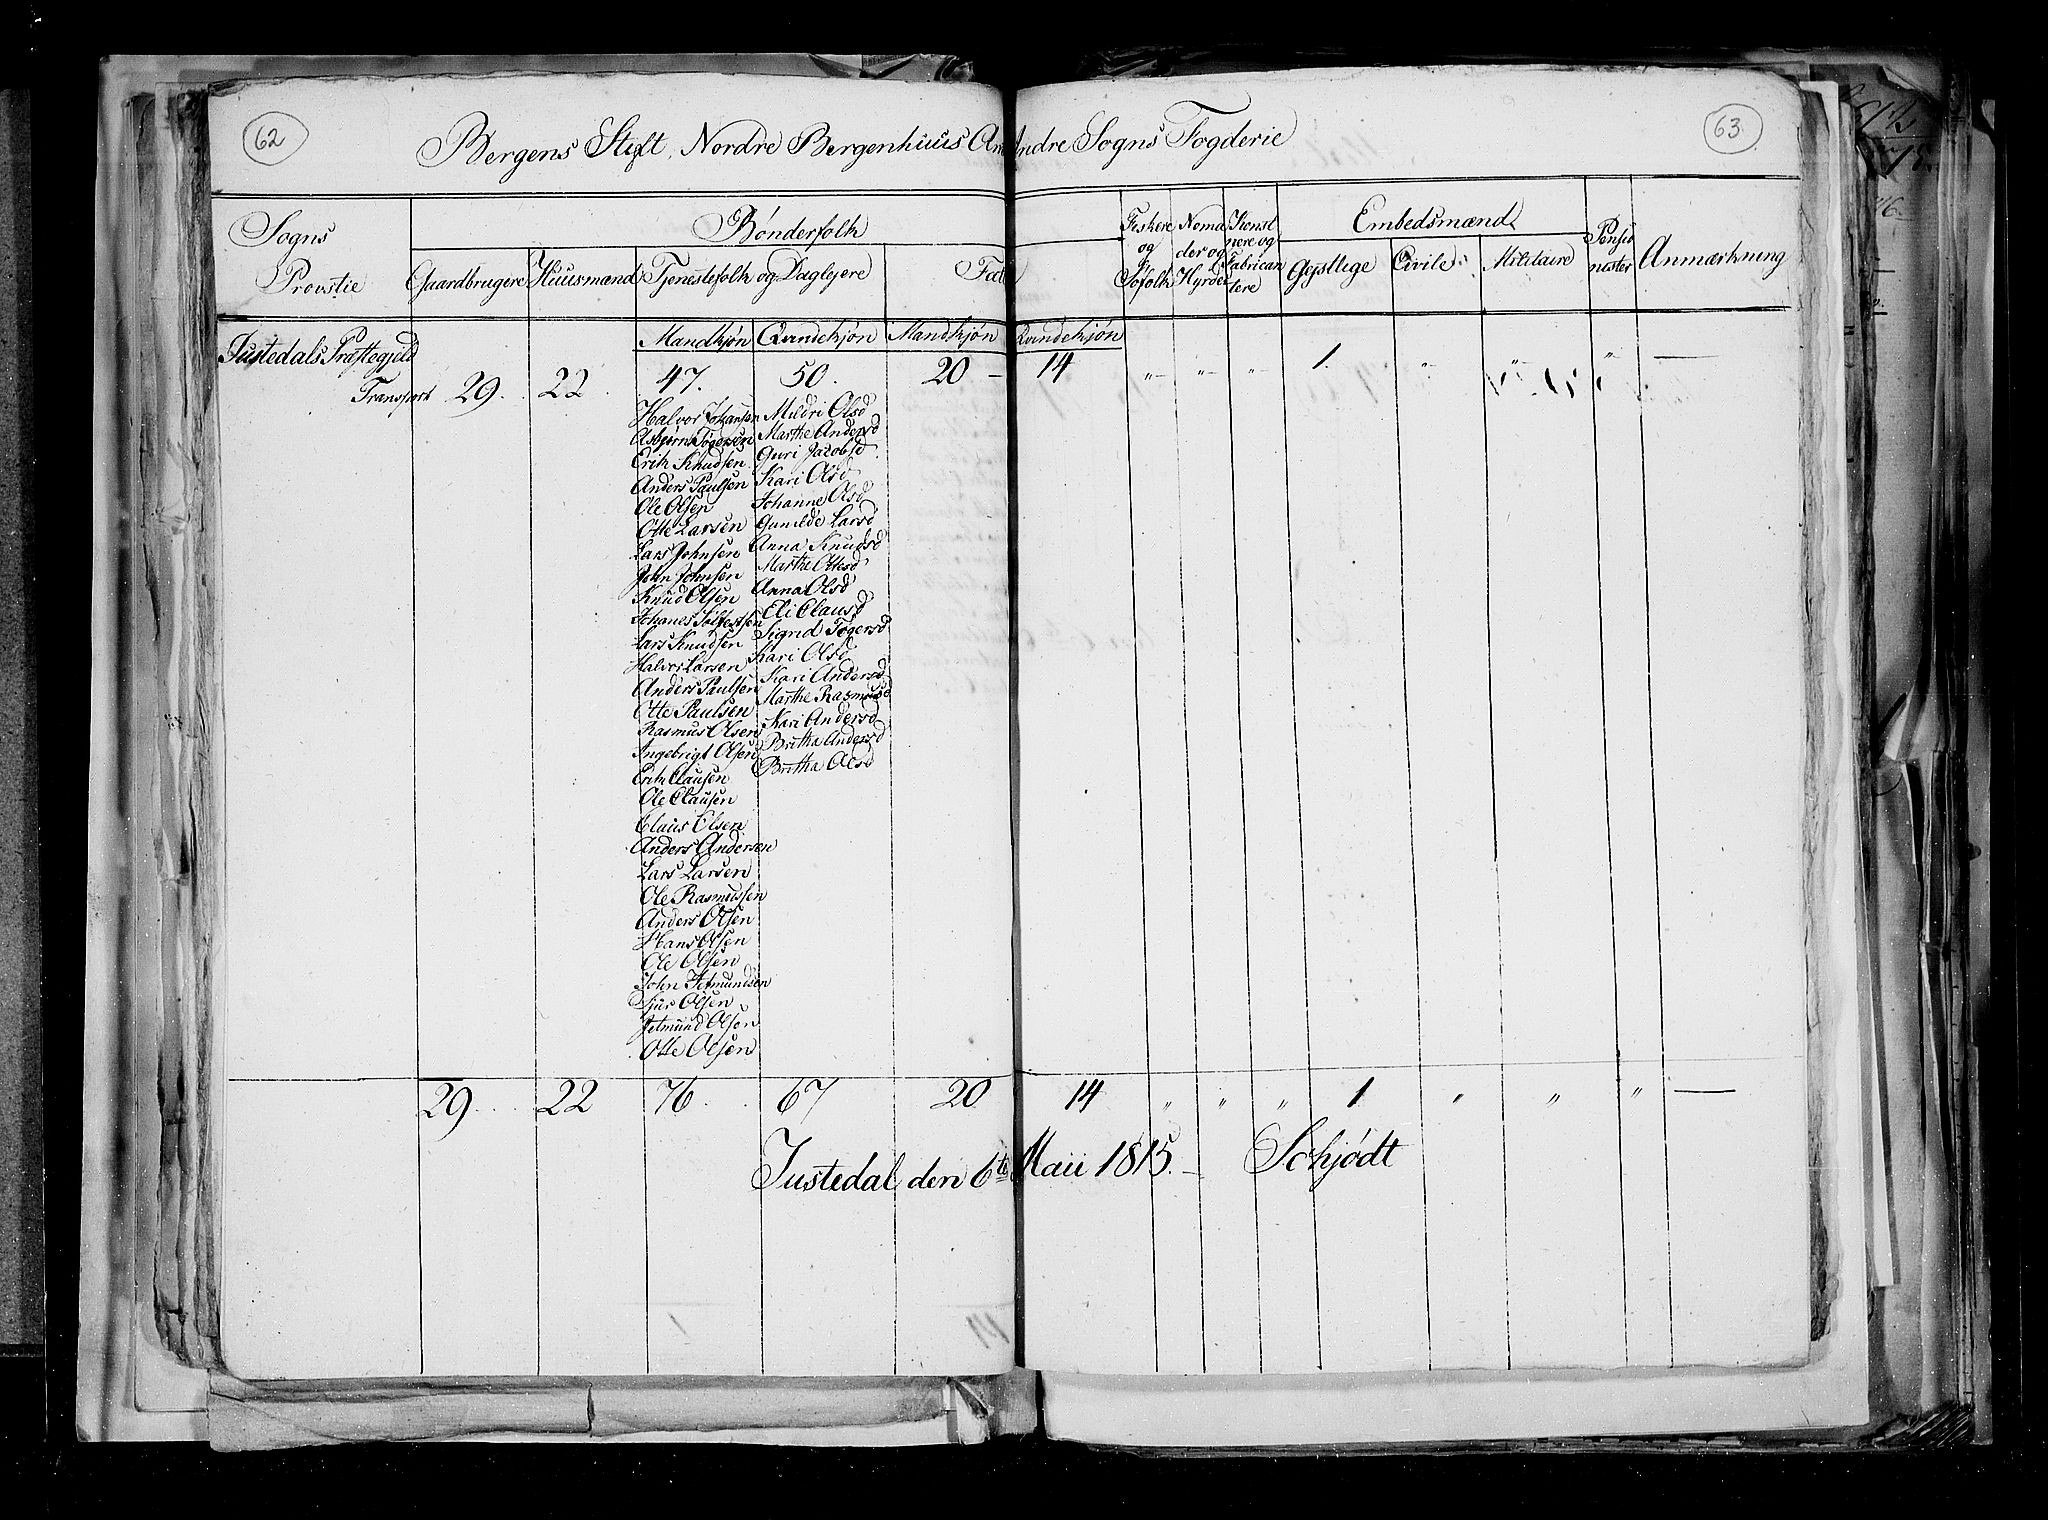 62
63
Bergens Stift, Nordre Bergenhuus Amt Indre Sogns Fogderie
Sogns
Provstie
Bønderfolk
Gaardbrugere
Huusmænd
Tjenestefolk og Daglejere
Fiskere
og
Søfolk
Noma
der og
Hyrder
Konst
nere og
Fabrican
tere
Embedsmænd
Gejstlige
Civile
Militaire
Pensio
nister
Anmærkning
Mandkjøn Qvindekjøn Mandkjøn Qvindekjøn
Justedals Præstegjeld
Transport 29 22 47. 50. 20 — 14 „— „— „— 1. „— „— „ —
Halvor Johansen Mildri Olsd
Asbjørn Tøgersen Marthe Andersd
Erik Knudsen Guri Jacobsd
Anders Paulsen Kari Olsd
Ole Olsen Johanne Olsd
Otte Larsen Gunilde Larsd
Lars Johnsen Anna Knudsd
John Johnsen Marthe Ottesd
Knud Olsen Anna Olsd
Johanes Solfestsen Eli Clausd
Lars Knudsen Sigrid Tøgersd
Halvor Larsen Kari Olsd
Anders Paulsen Kari Andersd
Otte Paulsen Marthe Rasmusd
Rasmus Olsen Kari Andersd
Ingebrigt Olsen Britha Andersd
Erik Clausen Britha Olsd
Ole Clausen
Claus Olsen
Anders Andersen
Lars Larsen
Ole Rasmussen
Anders Olsen
Hans Olsen
Ole Olsen
John Jetmundsen
Sjur Olsen
Jetmund Olsen
Otte Olsen
29 22 76 67 20 14 „ „ „ 1 „ „ „ —
Justedal den 6te Maii 1815. — Schjødt